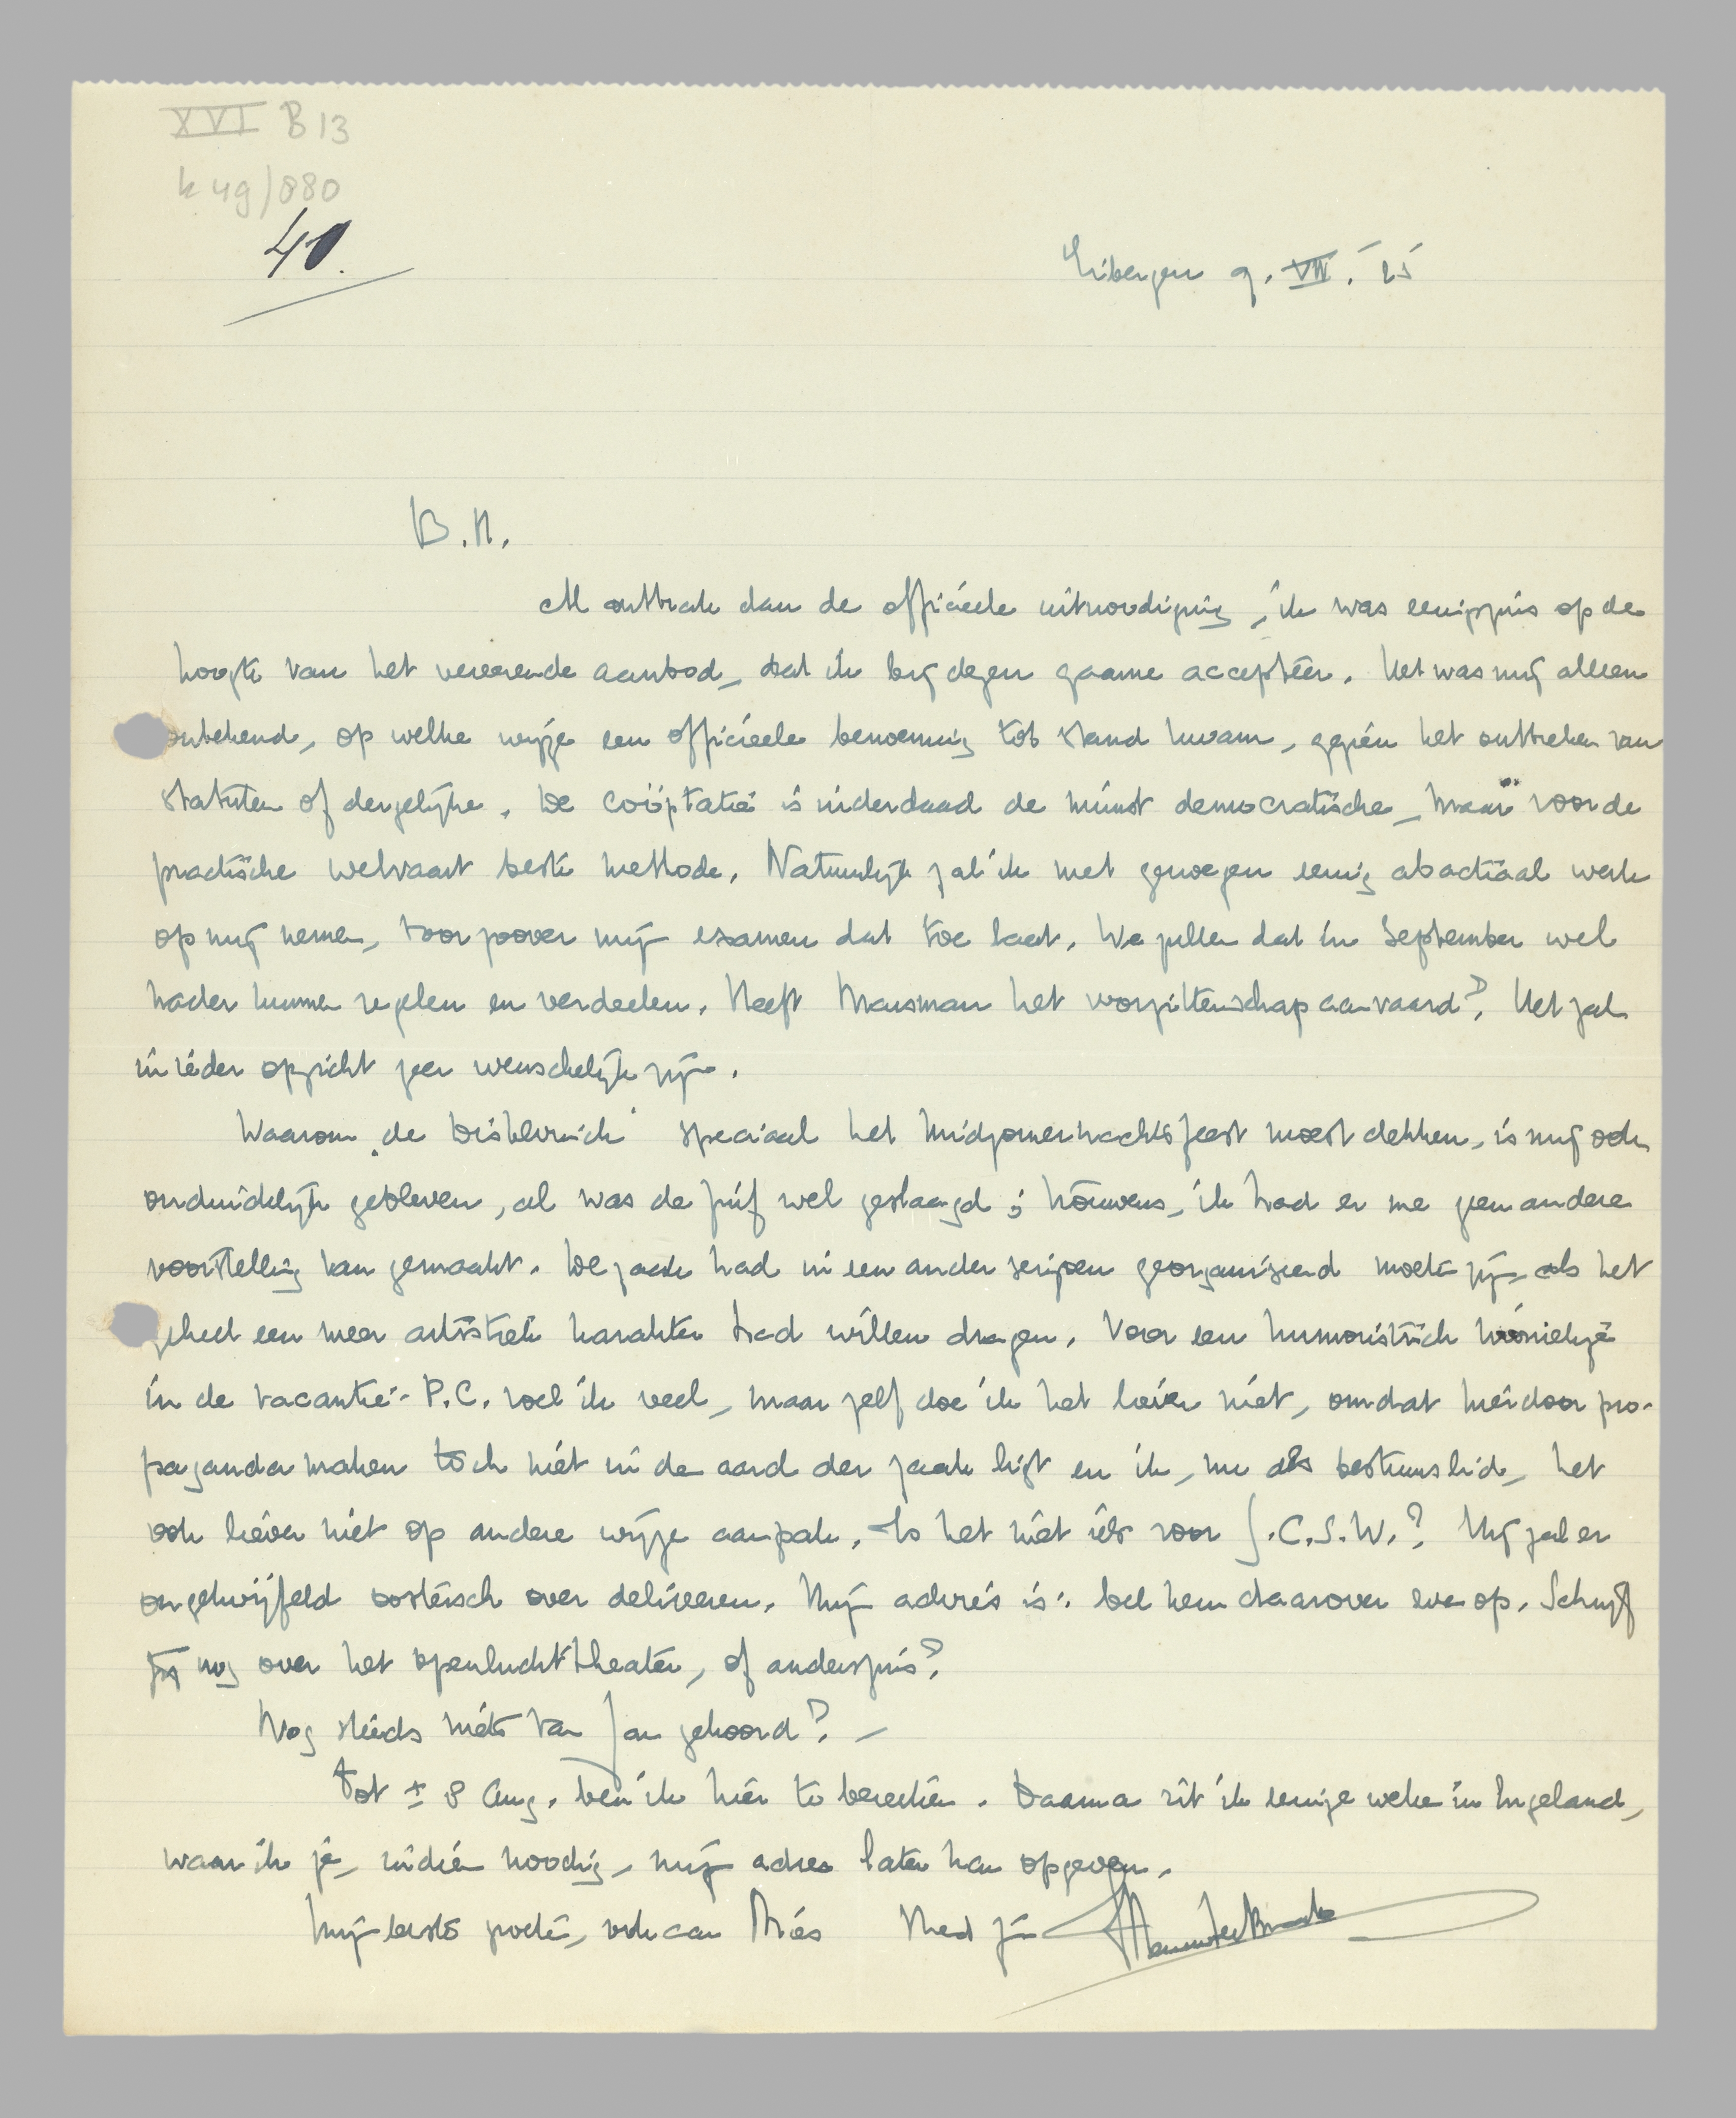 XVI B 13
k 49/880
40.
Eibergen 9.VII.'25
B.M.
Al ontbrak dan de officieele uitnoodiging, ik was eenigszins op de
hoogte van het vereerende aanbod, dat ik bij dezen gaarne accepteer. Het was mij alleen
onbekend, op welke wijze een officieele benoeming tot stand kwam, gezien het ontbreken van
statuten of dergelijke. De coöptatie is inderdaad de minst democratische, maar voor de
practische welvaart beste methode. Natuurlijk zal ik met genoegen eenig abactiaal werk
op mij nemen, voor zoover mijn examen dat toe laat. We zullen dat in September wel
nader kunnen regelen en verdeelen. Heeft Marsman het voorzitterschap aanvaard? Het zal
in ieder opzicht zeer wenschelijk zijn.
Waarom de speciaal het midzomernachtsfeest moest dekken, is mij ook
onduidelijk gebleven, al was de fuif wel geslaagd; trouwens, ik had er me geen andere
voorstelling van gemaakt. De zaak had in een ander seizoen georganiseerd moeten zijn, als het
geheel een meer artistiek karakter had willen dragen. Voor een humoristisch kroniekje
in de vacantie-P.C. voel ik veel, maar zelf doe ik het liever niet, omdat hierdoor pro-
paganda maken toch niet in de aard der zaak ligt en ik, nu als bestuurslid, het
ook liever niet op andere wijze aanpak. Is het niet iets voor J.C.S.W.? Hij zal er
ongetwijfeld oosters over delireeren. Mijn advies is: bel hem daarover eve op. Schrijf
jij nog over het openluchttheater, of anderszins?
Nog steeds niets van Jan gehoord? –
Tot ± 8 Aug. ben ik hier te bereiken. Daarna zit ik eenige weken in Engeland,
waar ik je, indien noodig, mijn adres laten kan opgeven.
Mijn beste groeten, ook aan Miès Med Menno ter Braak